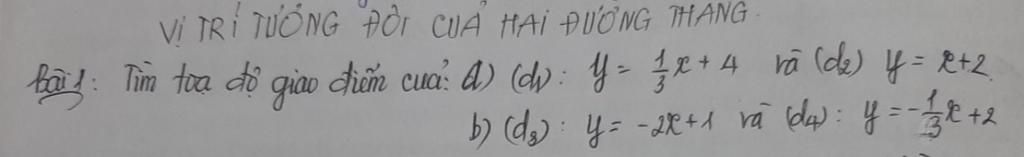 VỊ TRÍ TƯƠNG ĐỐI CỦA HAI ĐƯỜNG THẲNG.
Bài 1: Tìm toạ độ giao điểm của: a) (d1): y = 1/3 x + 4 và (d2) y = x + 2.
b) (d3): y = -2x + 1 và (d4): y = -1/3 x + 2